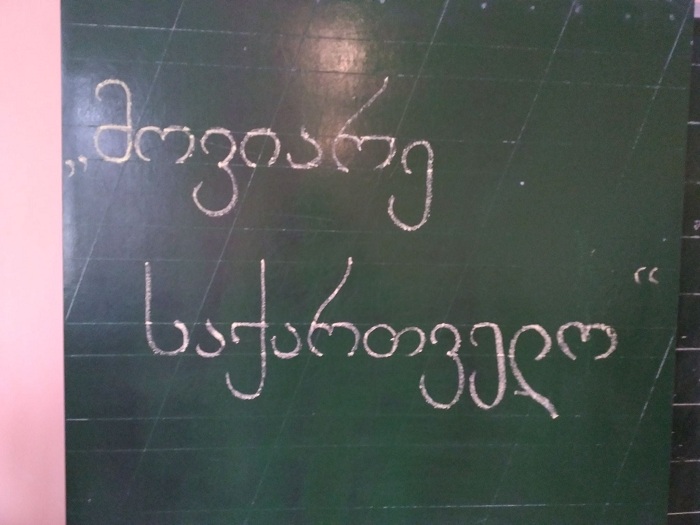 „მოვიარე
საქართველო“